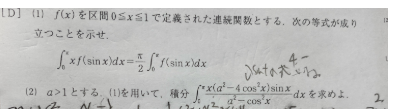 [D] (1) f(x)を区間0≦x≦1で定義された連続関数とする.次の等式が成り
立つことを示せ.
∫₀^π xf(sin x)dx=π/2∫₀^π f(sin x)dx
(2) a>1とする.(1)を用いて,積分∫₀^π x(a²−4cos²x)sin x/a²−cos²x dxを求めよ.
2